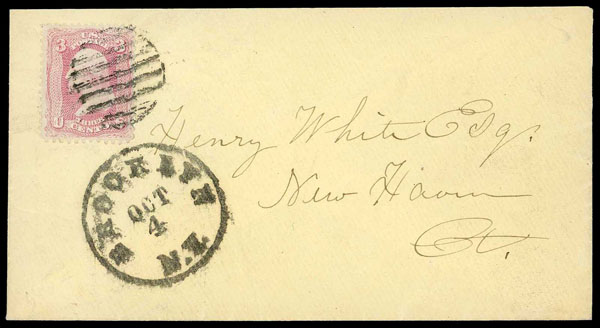 3 3
U S
CENTS
Henry White Esq.
New Haven
Ct.
BROOKLYN N.Y.
OCT
4